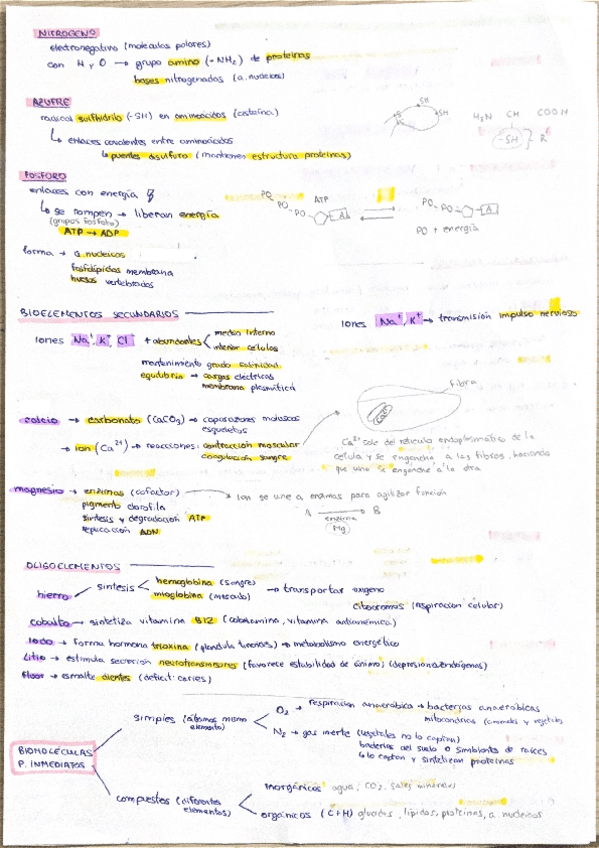 NITRÓGENO
electronegativo (moléculas polares)
con H y O → grupo amino (-NH₂) de proteínas
bases nitrogenadas (a. nucleicos)
AZUFRE
radical sulfhidrilo (-SH) en aminoácidos (cisteína)
SH
S
SH
H₂N CH COOH
-SH } R
↳ enlaces covalentes entre aminoácidos
↳ puentes disulfuro (mantienen estructura proteínas)
FÓSFORO
enlaces con energía
↳ se rompen → liberan energía
(grupos fosfato)
ATP → ADP
PO PO-PO- ATP A
PO-PO- A
PO + energía
forma → a. nucleicos
fosfolípidos membrana
huesos vertebrados
BIOELEMENTOS SECUNDARIOS
Iones Na⁺, K⁺, Cl⁻ + abundantes < medio interno
interior células
mantenimiento grado salinidad
equilibrio → cargas eléctricas
membrana plasmática
Iones Na⁺, K⁺ → transmisión impulso nervioso
calcio → carbonato (CaCO₃) → caparazones moluscos
esqueletos
→ ion (Ca²⁺) → reacciones: contracción muscular
coagulación sangre
fibra
Ca²⁺ sale del retículo endoplasmático de la
célula y se engancha a las fibras, haciendo
que una se enganche a la otra
magnesio → enzimas (cofactor) → Ion se une a enzimas para agilizar función
pigmento clorofila
síntesis y degradación ATP
replicación ADN
A → B
enzima
(Mg)
OLIGOELEMENTOS
hierro síntesis < hemoglobina (sangre)
mioglobina (músculo) → transportar oxígeno
citocromos (respiración celular)
cobalto → sintetiza vitamina B12 (cobalamina, vitamina antianémica)
Iodo → Forma hormona tiroxina (glándula tiroides) → metabolismo energético
Litio → estimula secreción neurotransmisores (favorece estabilidad de ánimo) (depresiones endógenas)
Fluor → esmalte dientes (déficit: caries)
BIOMOLÉCULAS
P. INMEDIATOS
simples (átomos mismo
elemento)
O₂ → respiración anaeróbica → bacterias anaeróbicas
mitocondrias (animales y vegetales)
N₂ → gas inerte (vegetales no lo captan)
bacterias del suelo o simbiontes de raíces
↳ lo captan y sintetizan proteínas
compuestos (diferentes
elementos)
inorgánicos agua, CO₂, sales minerales
orgánicos (C+H) glúcidos, lípidos, proteínas, a. nucleicos